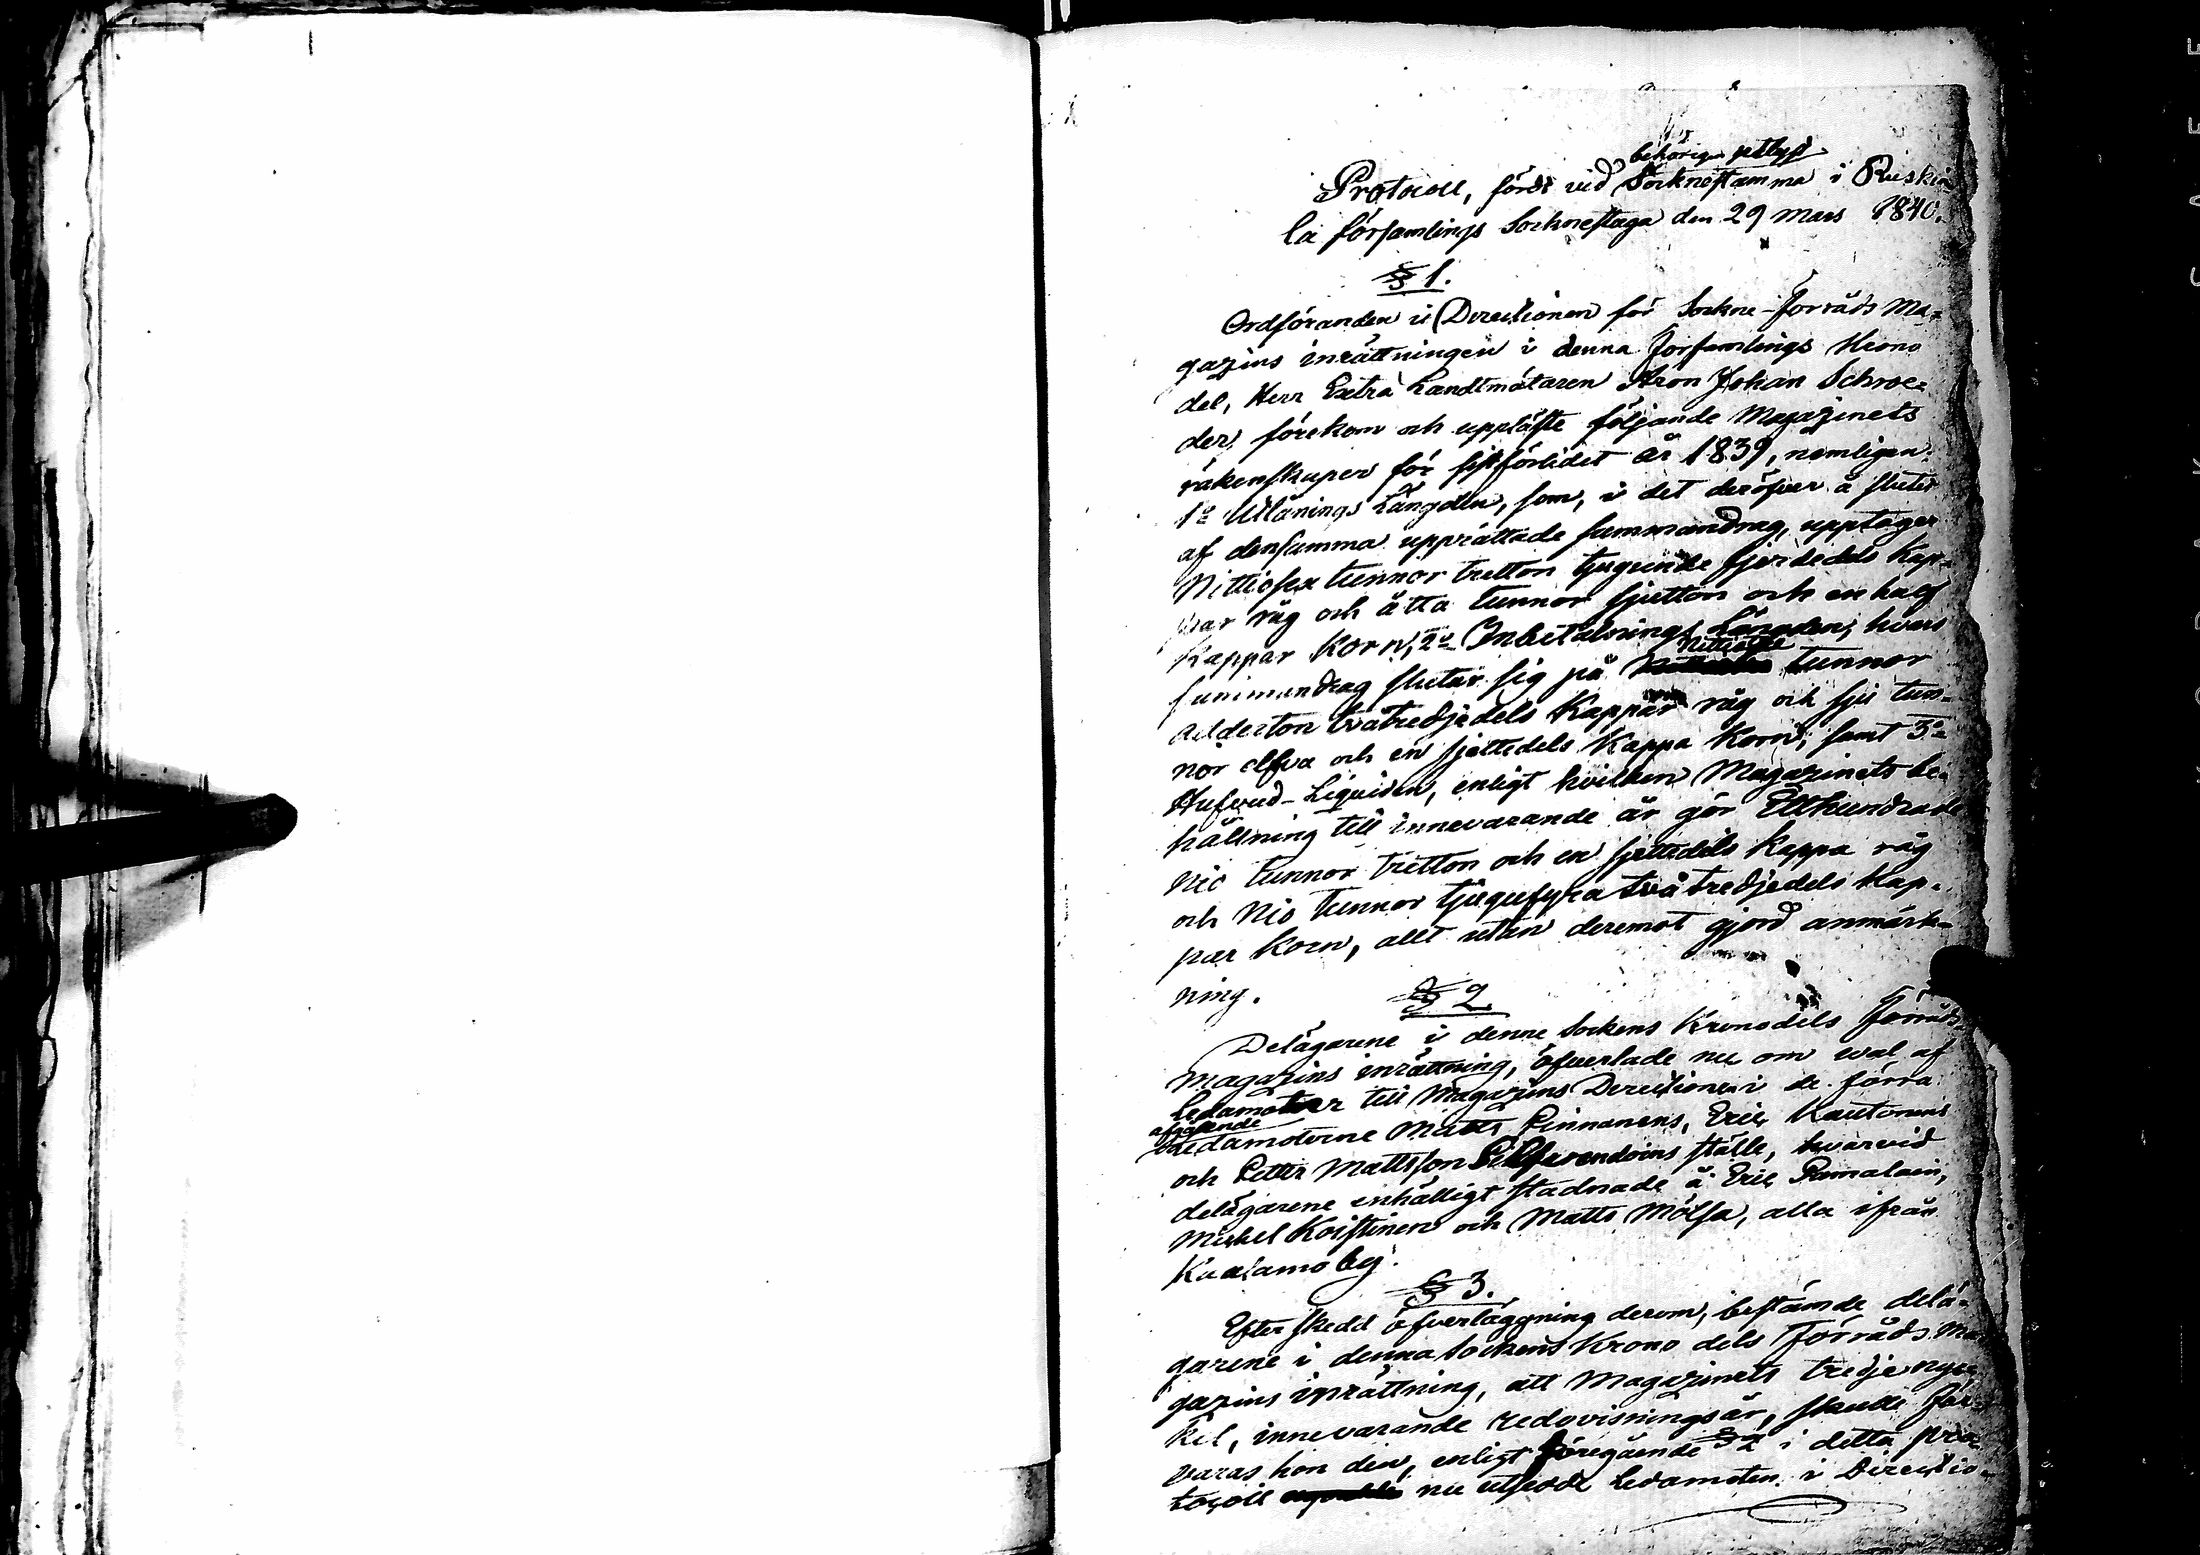 behörigen pålyst
Protocoll, fördt vid Sockenstämma i Ruskia-
la församlings Sockenstuga den 29 Mars 1840.
§ 1.
Ordföranden i Directionen för Sockne-Förråds Ma-
gazins inrättningen i denna församlings Krono
del, Herr Extra Landtmätaren Aron Johan Schroe-
der, förekom och uppläste följande Magazinets
räkenskaper för sistförlidet år 1839, nemligen:
1o Utlånings Längden, som, i det deröfver å slutet
af densamma upprättade summandrag, upptager
Nittiosex tunnor tretton tjugunde fjerdedels Kap-
par råg och åtta tunnor sjutton och en half
Kappar Korn, 2o Inbetalnings Längden, hvars
summandrag slutar sig på Nittioåtta tunnor
Aderton tvåtredjedels Kappar råg och sju tun-
nor elfva och en sjettedels Kappa Korn; samt 3o
Hufvud-Liquiden, enligt hvilken Magazinets be-
hållning till innevarande år gör Etthundrade
Nio tunnor tretton och en sjettedels kappa råg
och Nio tunnor tjugufyra två tredjedels Kap-
par Korn, allt utan deremot gjord anmärk-
ning.
§ 2.
Delägarene i denne Sockens Kronodels Förråds
Magazins inrättning, öfverlade nu om wal af
Ledamoter till Magazins Directionen i de förra
afgående
Ledamoterne Matts Pinnonens, Eric Kautonens
och Petter Mattsson ställe, hvarvid
delägarene enhälligt stadnade å Eric Pamalain,
Michel Koistinen och Matts Mölsä, alla ifrån
Kaalamo by.
§ 3.
Efter skedd öfverläggning derom, bestämde delä-
garene i denna Sockens Krono dels Förråds Ma-
gazins inrättning, att Magazinets tredje nyc-
kel, innevarande redovisningsår, skulle för-
varas hos den, enligt föregående § 2 i detta pro-
tocoll nu utsedde Ledamoten i Directio-